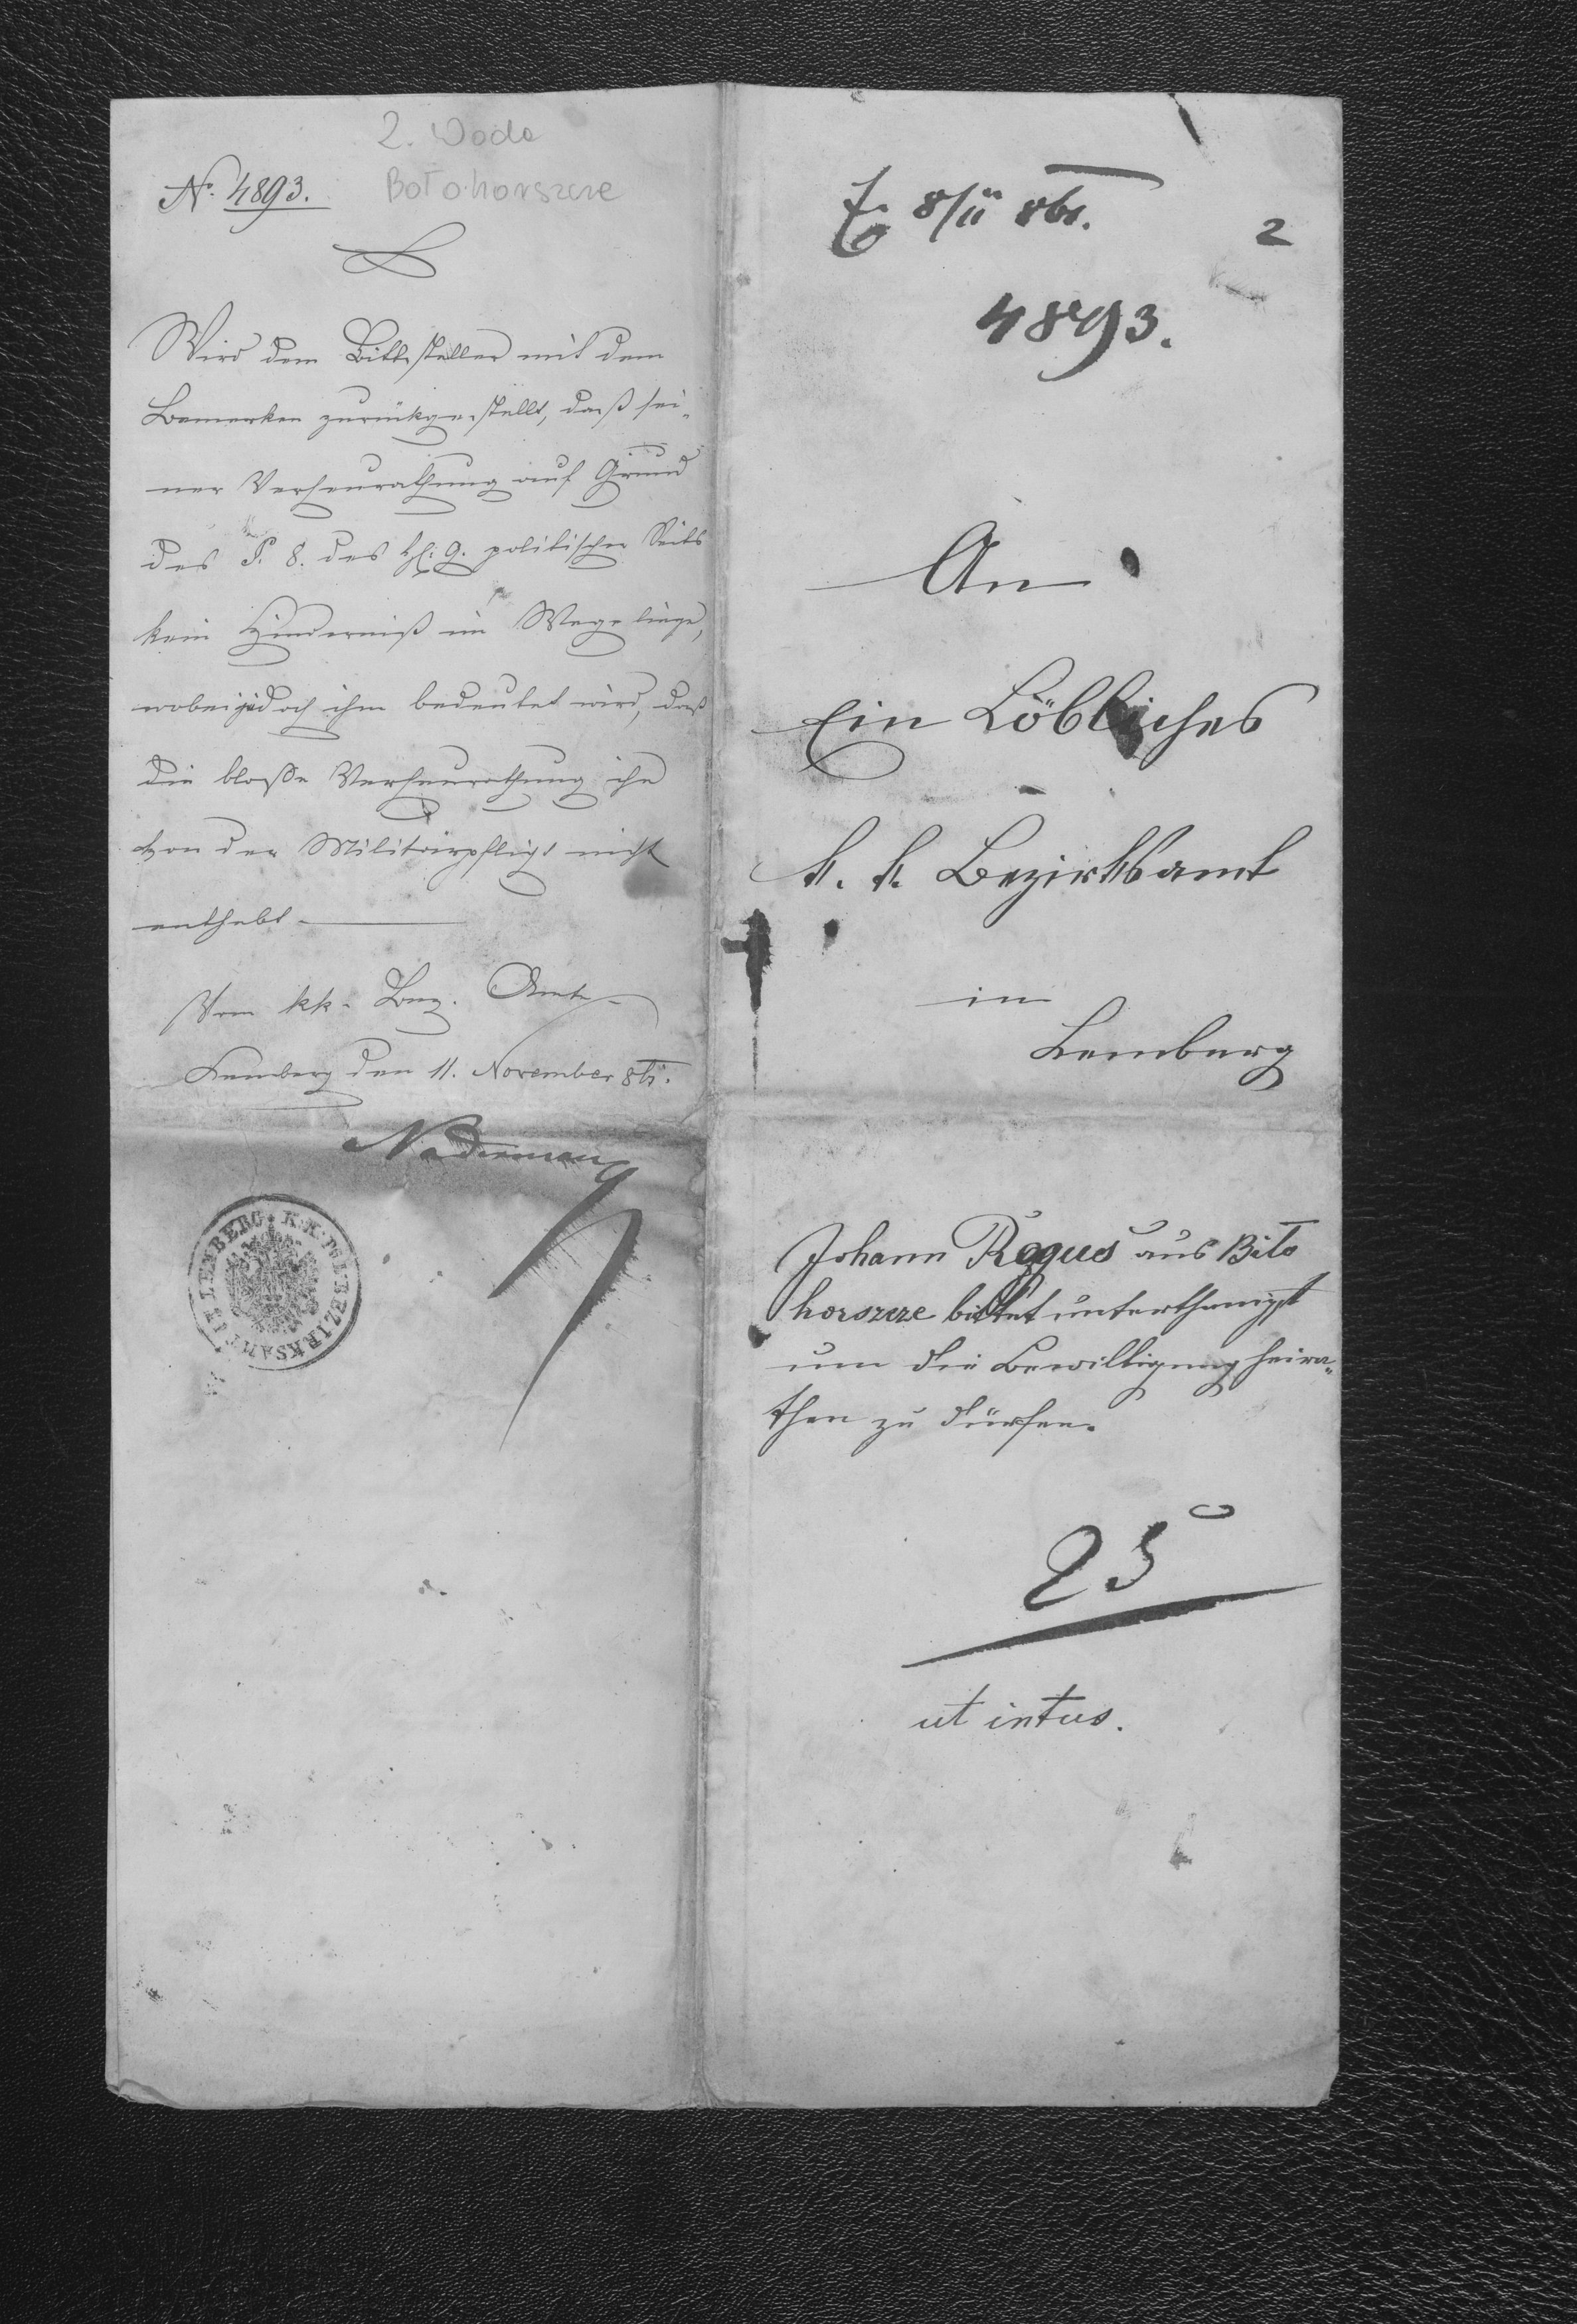 2. Woda
Bołohorszcze
N. 4893.
Wird dem Bittsteller mit dem
Bemerken zurückgestellt, daß sei„
ner Verheurathung auf Grund
des §. 8. des H. g. politischer Seits
kein Hinderniß im Wege liege,
wobei jedoch ihm bedeutet wird, daß
die blosse Verheurathung ihn
von der Militärpflicht nicht
enthebt.
Vom kk. Bez. Amte
Lemberg den 11. November 861.
LEMBERG K.K. BEZIRKSAMT
8/11 861.
2
4893.
An
Ein Löbliches
k. k. Bezirksamt
in
Lemberg
Johann Rogus aus Biło
horszcze bittet unterthänigst
um die Bewilligung heira„
then zu dürfen.
25
ut intus.